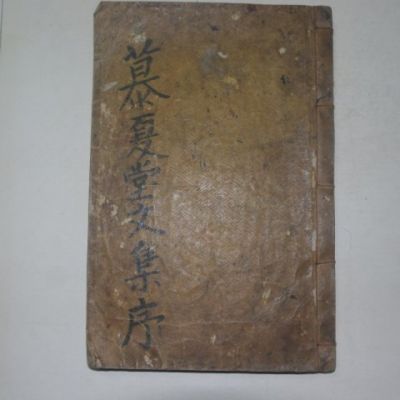 慕夏堂文集序